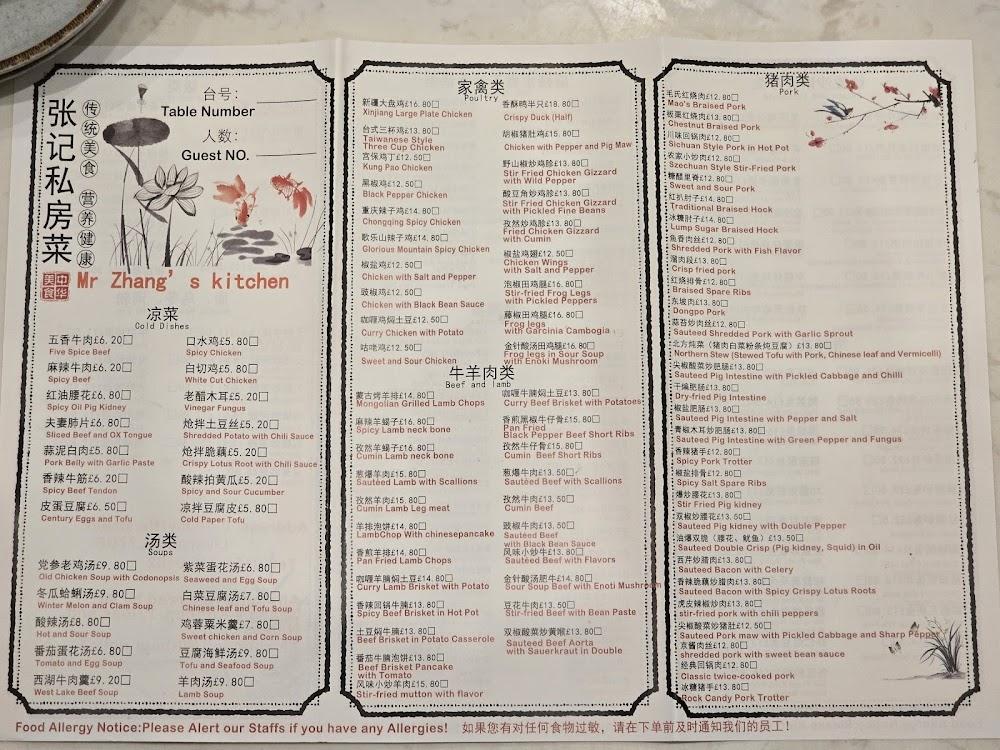 张记私房菜
传统美食 营养健康
台号:
Table Number
人数:
Guest NO.
中华美食
Mr Zhang's kitchen
凉菜
Cold Dishes
五香牛肉£6.20□
Five Spice Beef
麻辣牛肉£6.20□
Spicy Beef
红油腰花£6.80□
Spicy Oil Pig Kidney
夫妻肺片£6.80□
Sliced Beef and OX Tongue
蒜泥白肉£5.80□
Pork Belly with Garlic Paste
香辣牛筋£6.20□
Spicy Beef Tendon
皮蛋豆腐£6.50□
Century Eggs and Tofu
口水鸡£5.80□
Spicy Chicken
白切鸡£5.80□
White Cut Chicken
老醋木耳£5.20□
Vinegar Fungus
炝拌土豆丝£5.20□
Shredded Potato with Chili Sauce
炝拌脆藕£5.20□
Crispy Lotus Root with Chili Sauce
酸辣拍黄瓜£5.20□
Spicy and Sour Cucumber
凉拌豆腐皮£5.80□
Cold Paper Tofu
汤类
Soups
党参老鸡汤£9.80□
Old Chicken Soup with Codonopsis
冬瓜蛤蜊汤£9.80□
Winter Melon and Clam Soup
酸辣汤£8.80□
Hot and Sour Soup
番茄蛋花汤£6.80□
Tomato and Egg Soup
西湖牛肉羹£9.20□
West Lake Beef Soup
紫菜蛋花汤£6.80□
Seaweed and Egg Soup
白菜豆腐汤£7.80□
Chinese leaf and Tofu Soup
鸡蓉粟米羹£7.80□
Sweet chicken and Corn Soup
豆腐海鲜汤£9.80□
Tofu and Seafood Soup
羊肉汤£9.80□
Lamb Soup
家禽类
Poultry
新疆大盘鸡£16.80□
Xinjiang Large Plate Chicken
台式三杯鸡£13.80□
Taiwanese Style
Three Cup Chicken
宫保鸡丁£12.50□
Kung Pao Chicken
黑椒鸡£12.50□
Black Pepper Chicken
重庆辣子鸡£14.80□
Chongqing Spicy Chicken
歌乐山辣子鸡£14.80□
Glorious Mountain Spicy Chicken
椒盐鸡£12.50□
Chicken with Salt and Pepper
豉椒鸡£12.50□
Chicken with Black Bean Sauce
咖喱鸡焖土豆£12.50□
Curry Chicken with Potato
咕咾鸡£12.50□
Sweet and Sour Chicken
香酥鸭半只£18.80□
Crispy Duck (Half)
胡椒猪肚鸡£15.80□
Chicken with Pepper and Pig Maw
野山椒炒鸡胗£13.80□
Stir Fried Chicken Gizzard
with Wild Pepper
酸豆角炒鸡胗£13.80□
Stir Fried Chicken Gizzard
with Pickled Fine Beans
孜然炒鸡胗£13.80□
Fried Chicken Gizzard
with Cumin
椒盐鸡翅£12.50□
Chicken Wings
with Salt and Pepper
泡椒田鸡腿£16.80□
Stir-fried Frog Legs
with Pickled Peppers
藤椒田鸡腿£16.80□
Frog legs
with Garcinia Cambogia
金针酸汤田鸡腿£16.80□
Frog legs in Sour Soup
with Enoki Mushroom
牛羊肉类
Beef and lamb
蒙古烤羊排£14.80□
Mongolian Grilled Lamb Chops
麻辣羊蝎子£16.80□
Spicy Lamb neck bone
孜然羊蝎子£16.80□
Cumin Lamb neck bone
葱爆羊肉£15.80□
Sauteed Lamb with Scallions
孜然羊肉£15.80□
Cumin Lamb Leg meat
羊排泡饼£14.80□
LambChop With chinesepancake
香煎羊排£14.80□
Pan Fried Lamb Chops
咖喱羊腩焖土豆£14.80□
Curry Lamb Brisket with Potato
香辣回锅牛腩£13.80□
Spicy Beef Brisket in Hot Pot
土豆焖牛腩£13.80□
Beef Brisket in Potato Casserole
番茄牛腩泡饼£13.80□
Beef Brisket Pancake
with Tomato
风味小炒羊肉£15.80□
Stir-fried mutton with flavor
咖喱牛腩焖土豆£13.80□
Curry Beef Brisket with Potatoes
香煎黑椒牛仔骨£15.80□
Pan Fried
Black Pepper Beef Short Ribs
孜然牛仔骨£15.80□
Cumin Beef Short Ribs
葱爆牛肉£13.50□
Sauteed Beef with Scallions
孜然牛肉£13.50□
Cumin Beef
豉椒牛肉£13.50□
Sauteed Beef
with Black Bean Sauce
风味小炒牛£13.80□
Sauteed Beef with Flavors
金针酸汤肥牛£14.80□
Sour Soup Beef with Enoti Mushroom
豆花牛肉£13.50□
Stir-fried Beef with Bean Paste
双椒酸菜炒黄喉£13.80□
Sauteed Beef Aorta
with Sauerkraut in Double
猪肉类
Pork
毛氏红烧肉£12.80□
Mao's Braised Pork
板栗红烧肉£13.80□
Chestnut Braised Pork
川味回锅肉£12.80□
Sichuan Style Pork in Hot Pot
农家小炒肉£12.80□
Szechuan Style Stir-Fried Pork
糖醋里脊£12.80□
Sweet and Sour Pork
红扒肘子£14.80□
Traditional Braised Hock
冰糖肘子£14.80□
Lump Sugar Braised Hock
鱼香肉丝£12.80□
Shredded Pork with Fish Flavor
溜肉段£13.80□
Crisp fried pork
红烧排骨£12.80□
Braised Spare Ribs
东坡肉£13.80□
Dongpo Pork
蒜苔炒肉丝£12.80□
Sauteed Shredded Pork with Garlic Sprout
北方炖菜(猪肉白菜粉条炖豆腐)£13.80□
Northern Stew (Stewed Tofu with Pork, Chinese leaf and Vermicelli)
尖椒酸菜炒肥肠£13.80□
Sauteed Pig Intestine with Pickled Cabbage and Chilli
干煸肥肠£13.80□
Dry-fried Pig Intestine
椒盐肥肠£13.80□
Sauteed Pig Intestine with Pepper and Salt
青椒木耳炒肥肠£13.80□
Sauteed Pig Intestine with Green Pepper and Fungus
香辣猪手£12.80□
Spicy Pork Trotter
椒盐排骨£12.80□
Spicy Salt Spare Ribs
爆炒腰花£13.50□
Stir Fried Pig kidney
双椒炒腰花£13.50□
Sauteed Pig kidney with Double Pepper
油爆双脆(腰花、鱿鱼)£13.50□
Sauteed Double Crisp (Pig kidney, Squid) in Oil
西芹炒腊肉£13.80□
Sauteed Bacon with Celery
香辣脆藕炒腊肉£13.80□
Sauteed Bacon with Spicy Crispy Lotus Roots
虎皮辣椒炒肉£13.80□
stir-fried pork with chili peppers
尖椒酸菜炒猪肚£12.50□
Sauteed Pork maw with Pickled Cabbage and Sharp Pepper
京酱肉丝£12.80□
shredded pork with sweet bean sauce
经典回锅肉£12.80□
Classic twice-cooked pork
冰糖猪手£13.80□
Rock Candy Pork Trotter
Food Allergy Notice:Please Alert our Staffs if you have any Allergies! 如果您有对任何食物过敏，请在下单前及时通知我们的员工！